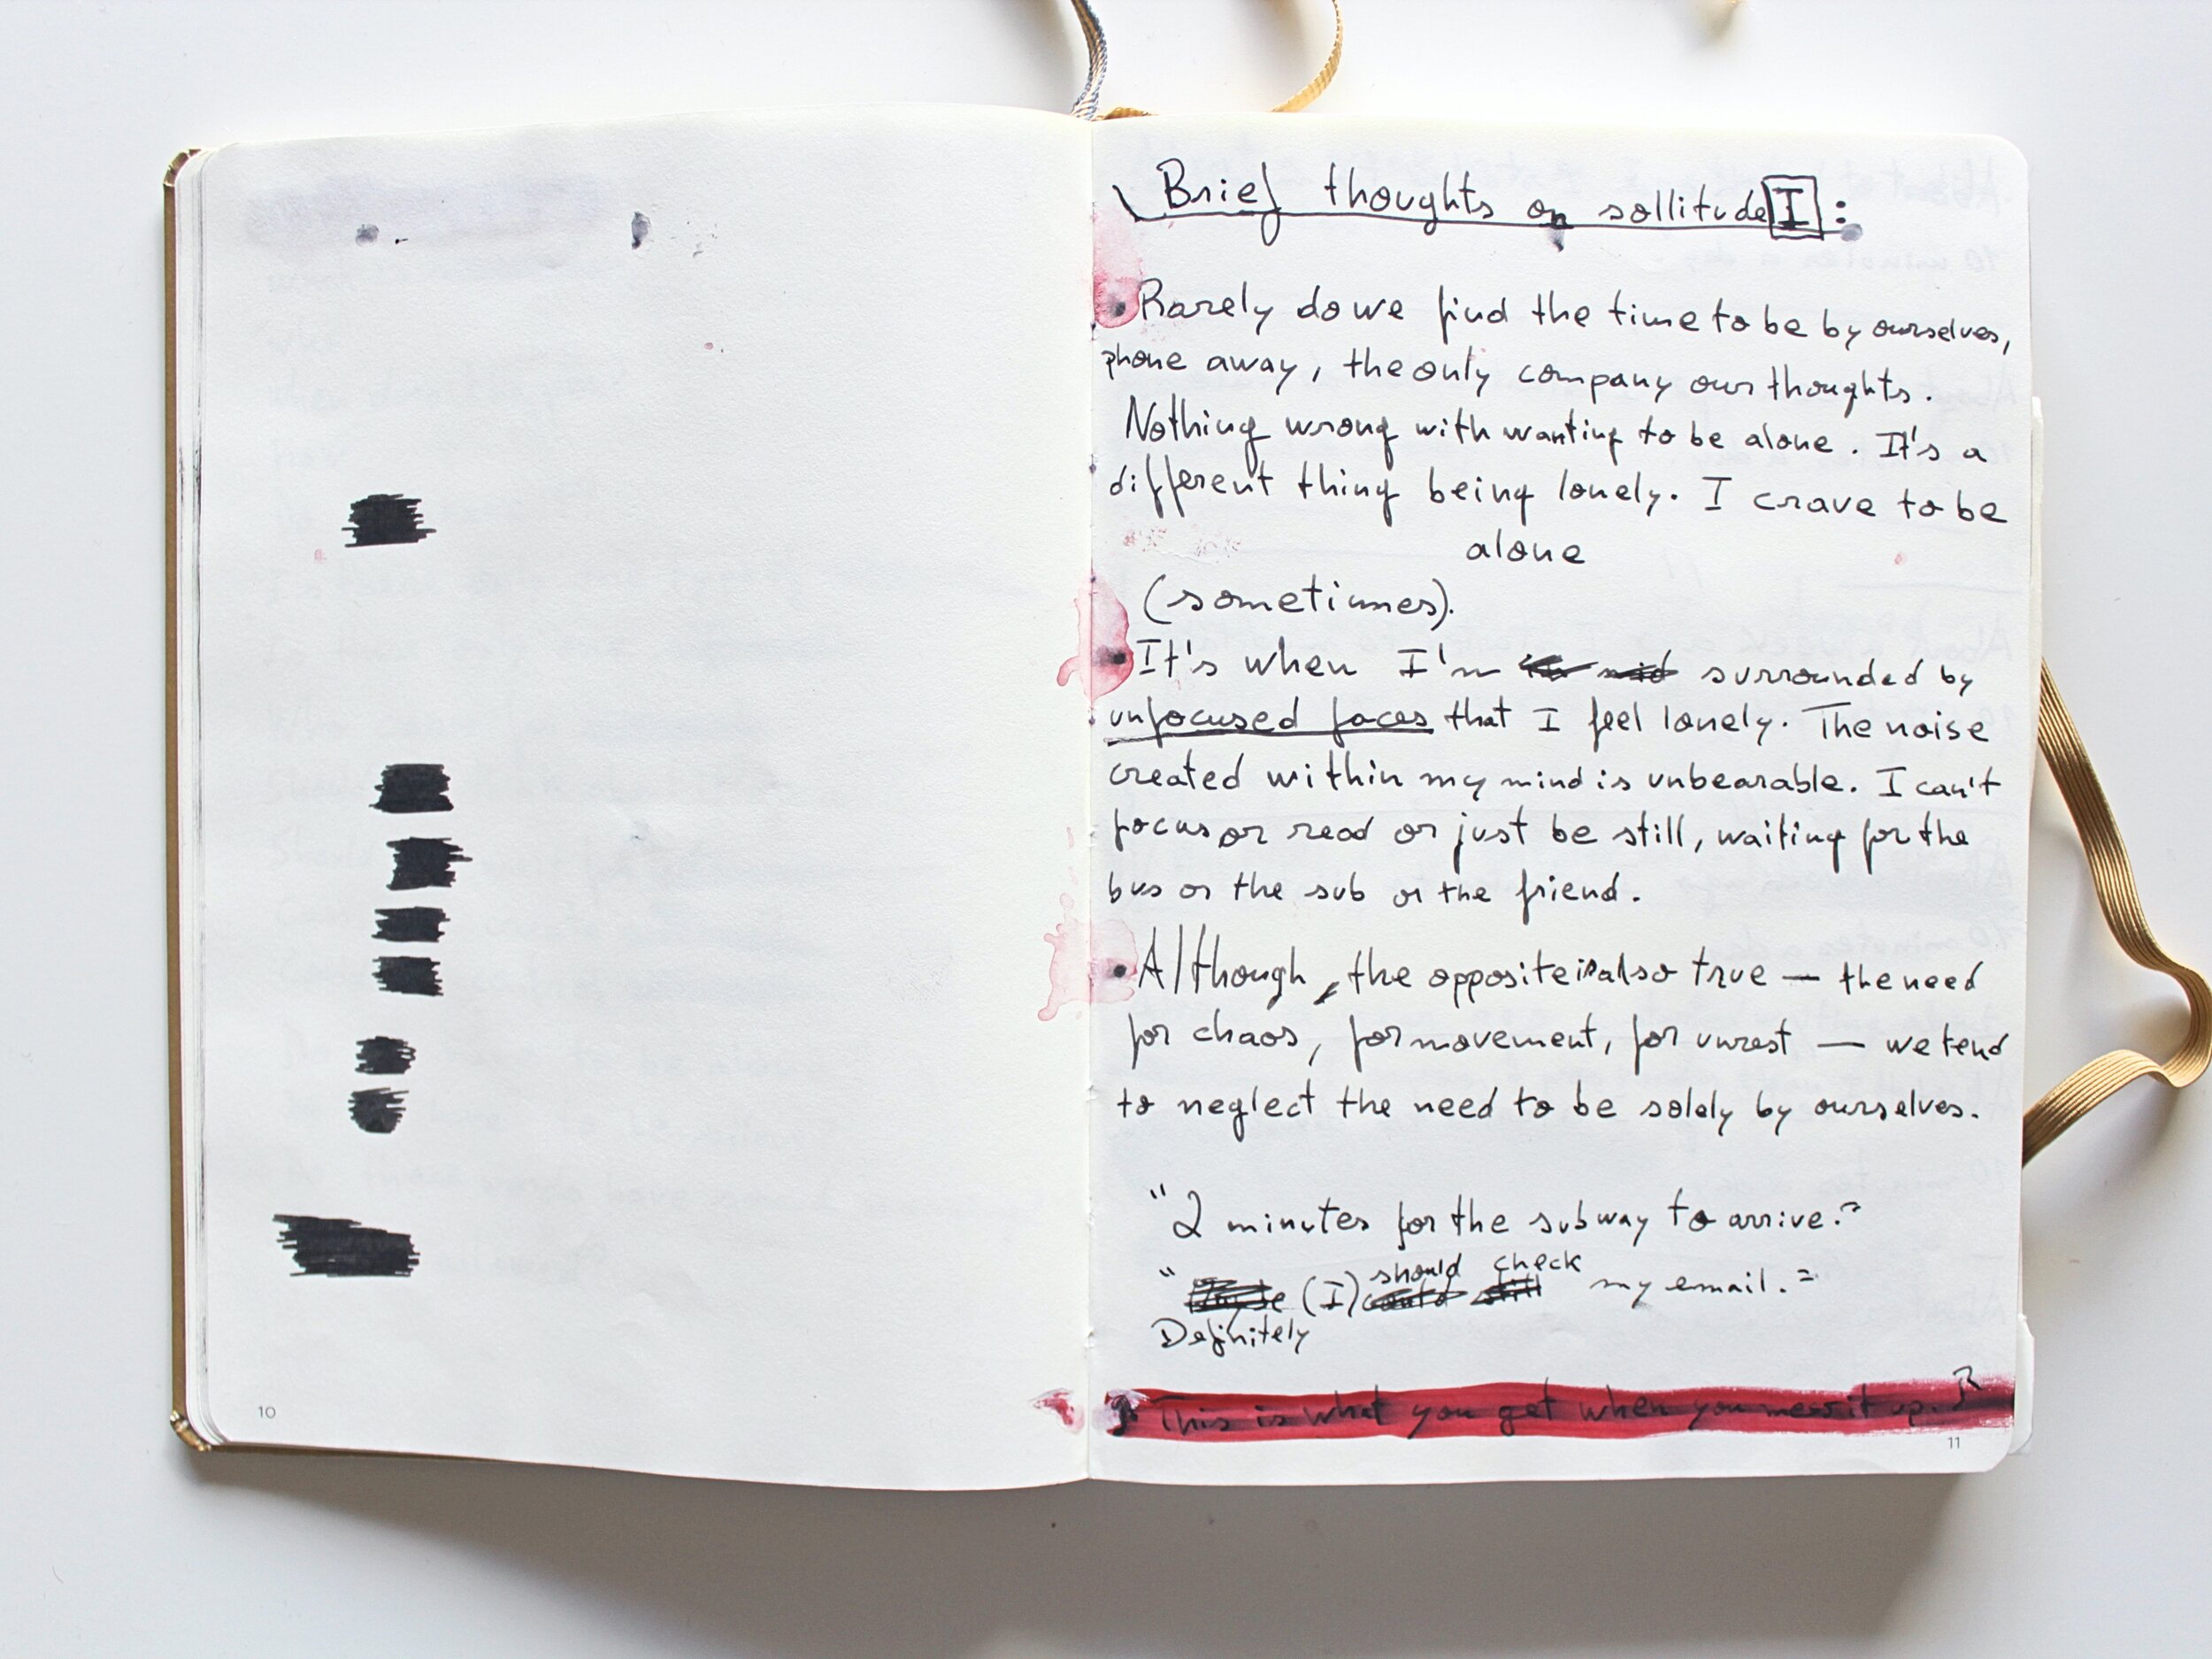 Brief thoughts on sollitude I :
• Rarely do we find the time to be by ourselves,
phone away, the only company our thoughts.
Nothing wrong with wanting to be alone. It's a
different thing being lonely. I crave to be
alone
(sometimes).
• It's when I'm surrounded by
unfocused faces that I feel lonely. The noise
created within my mind is unbearable. I can't
focus or read or just be still, waiting for the
bus or the sub or the friend.
• Although, the opposite is also true — the need
for chaos, for movement, for unrest — we tend
to neglect the need to be solely by ourselves.
"2 minutes for the subway to arrive."
should check
" (I) my email."
Definitely
This is what you get when you mess it up.
10
11